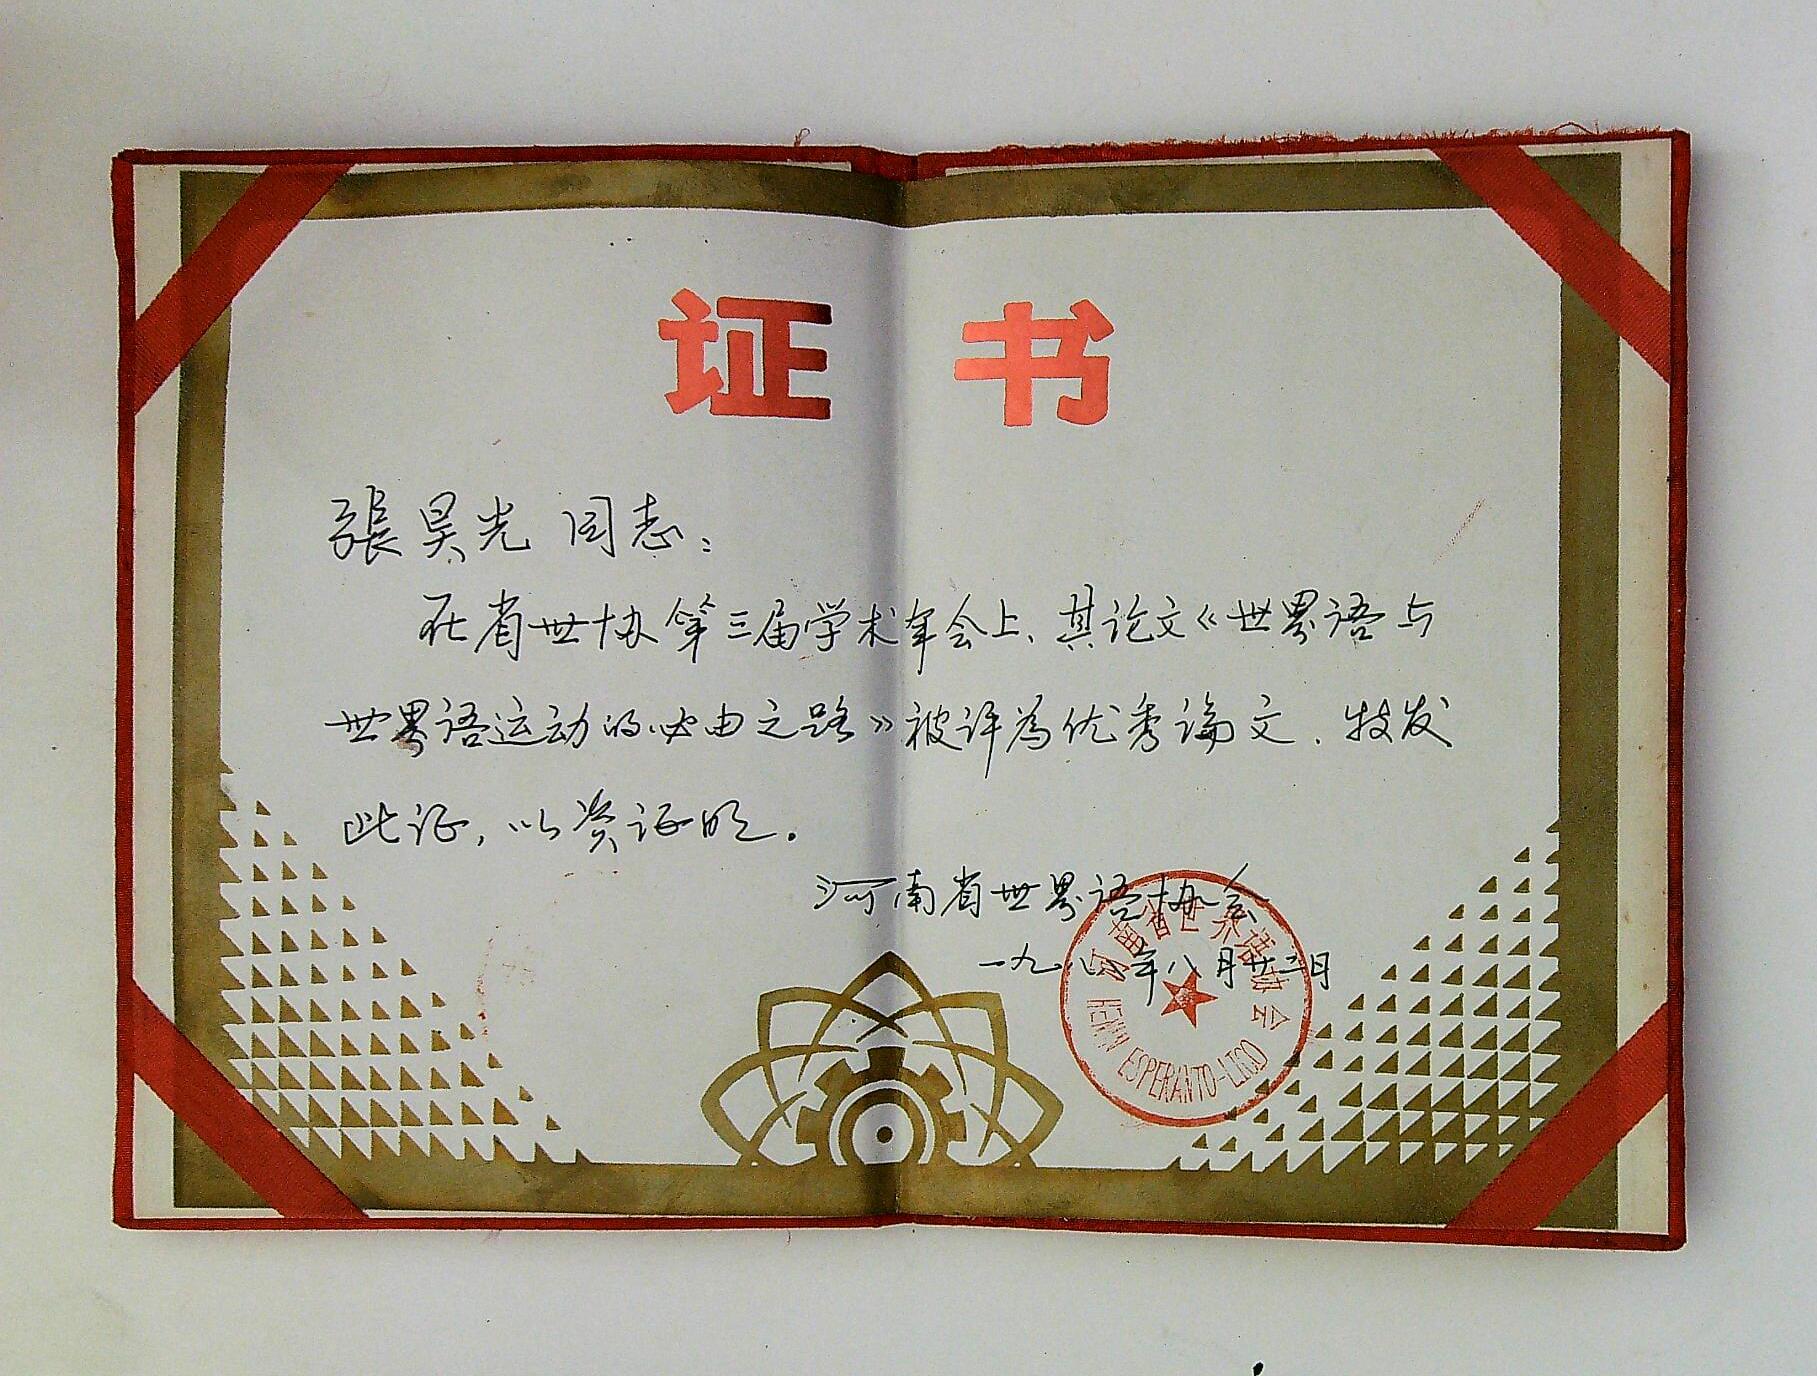 证 书
張昊光 同志：
在省世协第三届学术年会上、其论文《世界语与
世界语运动的必由之路》被评為优秀論文、特发
此证，以资证明。
河南省世界语协会
八月廿二日
河南省世界语协会
HENAN ESPERANTO-LIGO